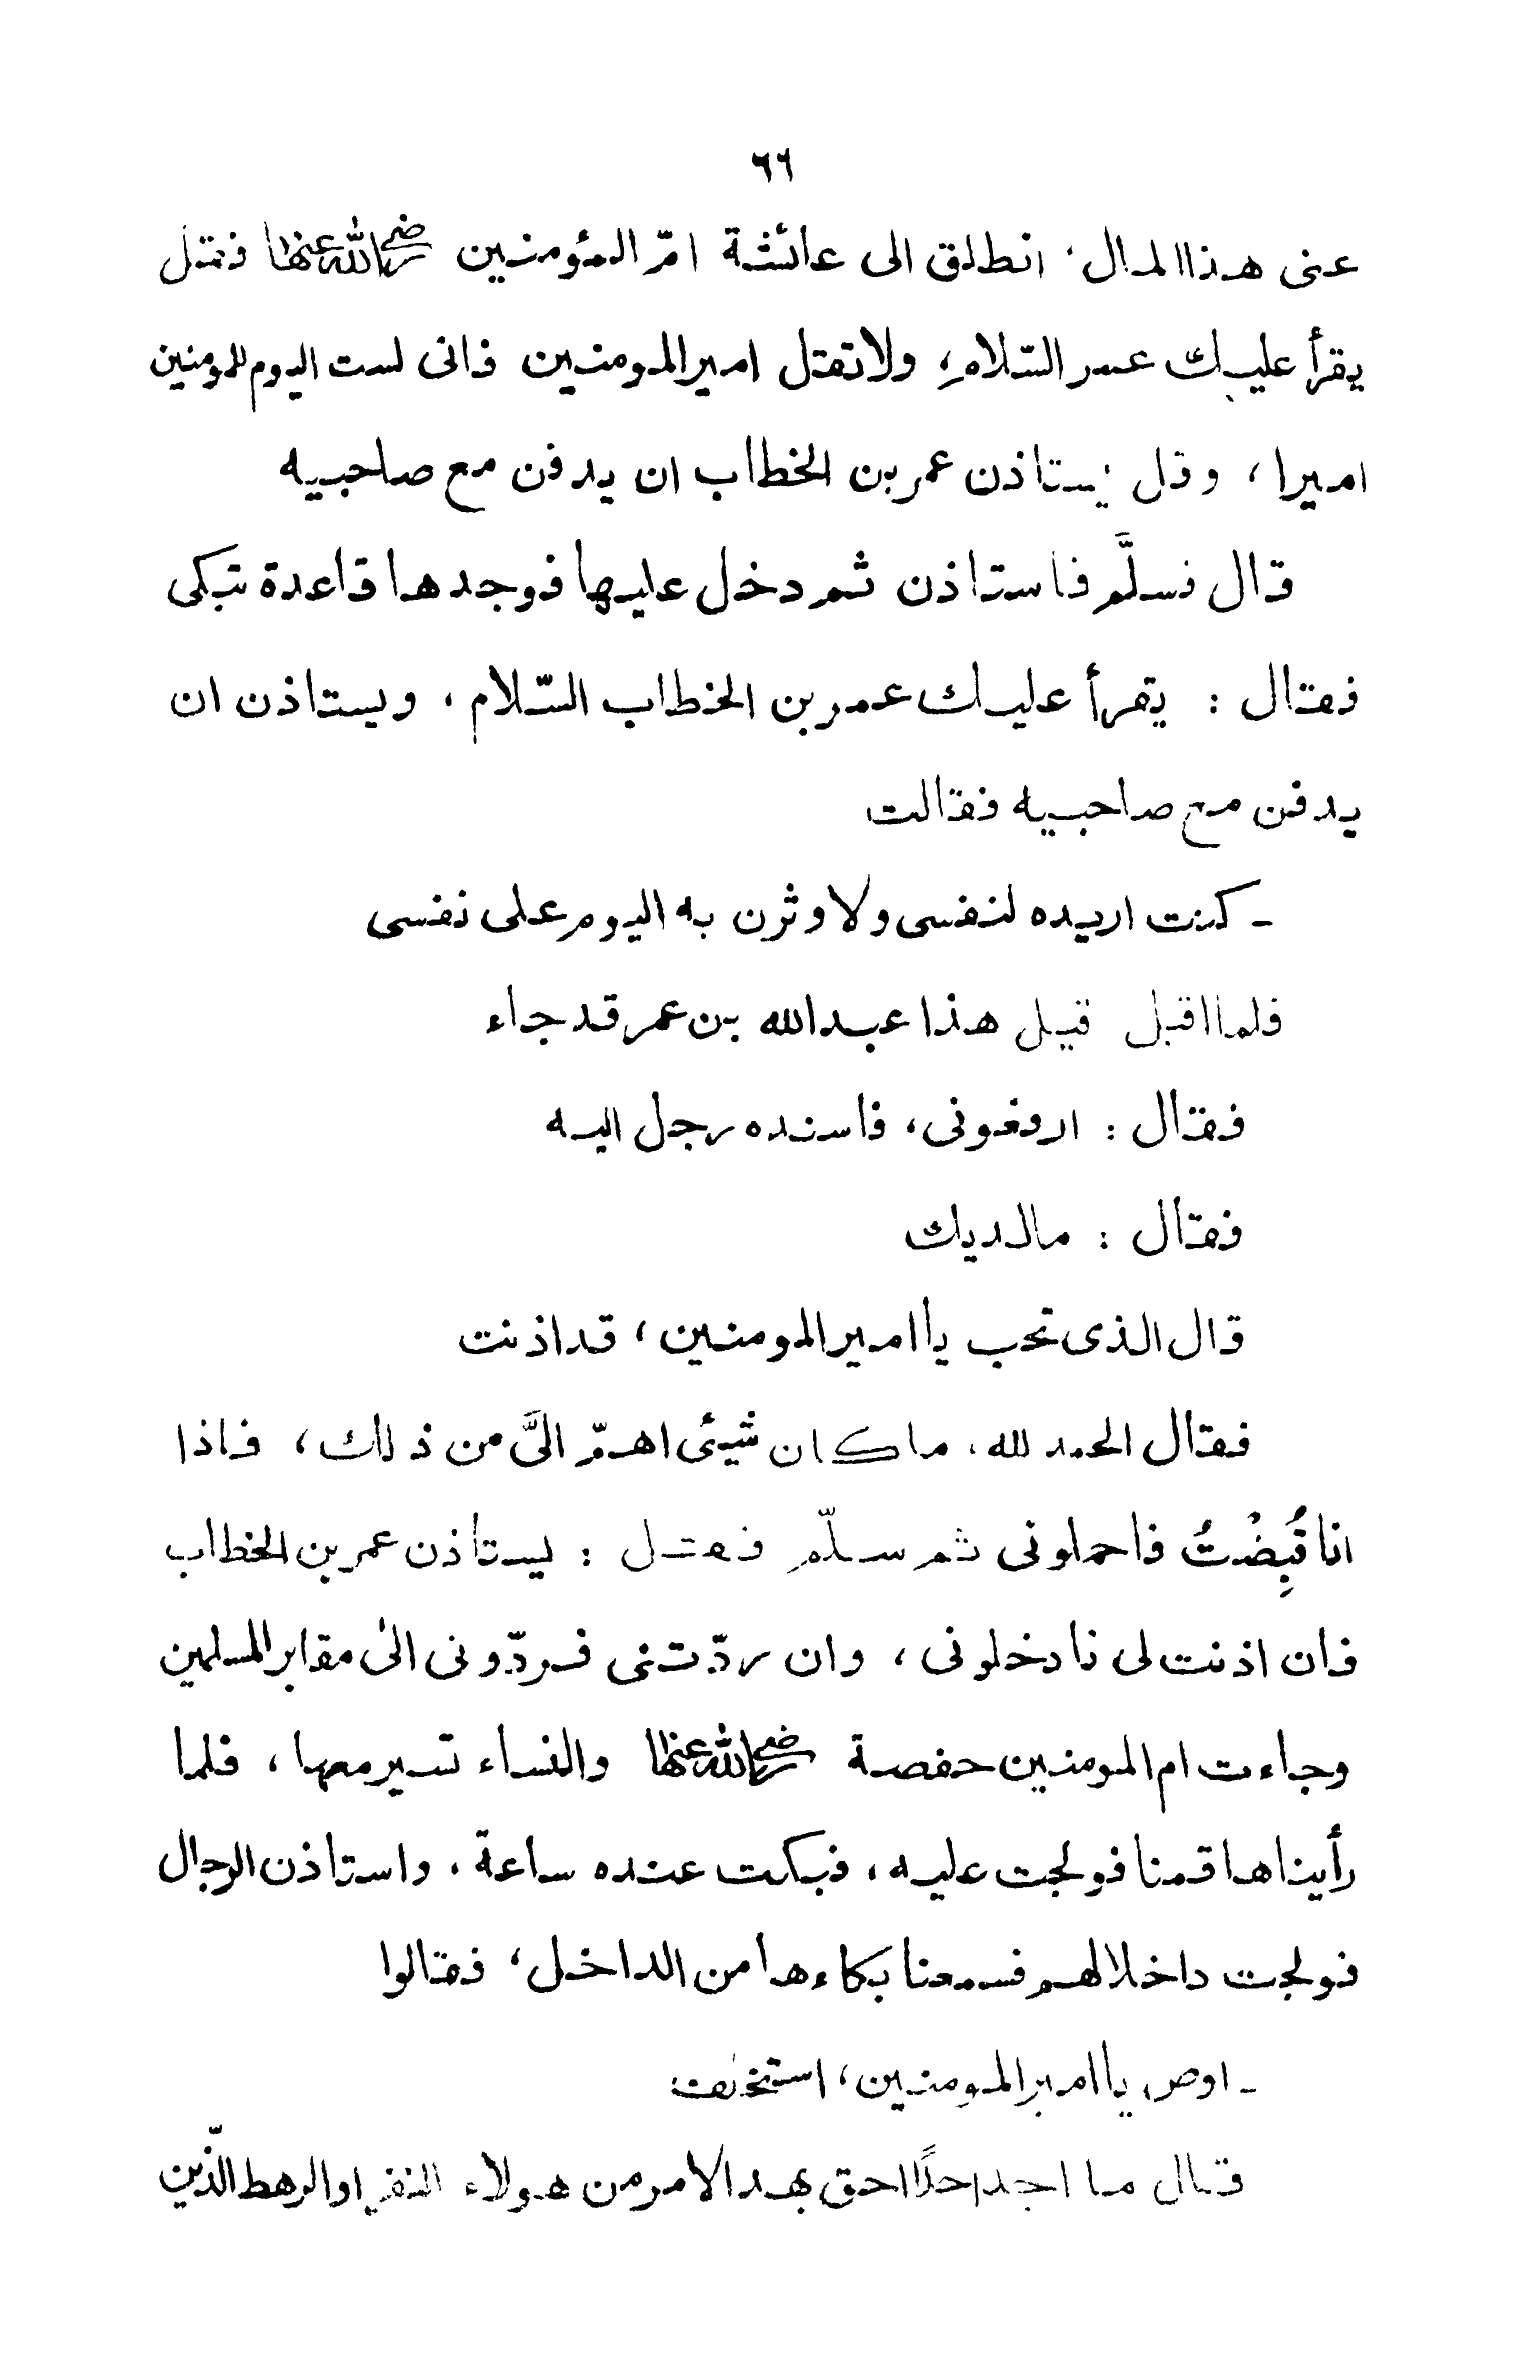 ٦٦
عنى هذا المال، انطلق الى عائشة امّ المؤمنين رضی اللہ عنها فقل
يقرأ عليك عمر السّلام، ولا تقل امير المومنين فانى لست اليوم للمومنين
اميرا، وقل يستاذن عمر بن الخطاب ان يدفن مع صاحبيه
قال فسلَّم فاستاذن ثم دخل عليها فوجدها قاعدة تبكى
فقال : يقرأ عليك عمر بن الخطاب السّلام، ويستاذن ان
يدفن مع صاحبيه فقالت
- كنت اريده لنفسى ولاوثرن به اليوم على نفسى
فلما اقبل قيل هذا عبدالله بن عمر قد جاء
فقال : ارفعونى، فاسنده رجل اليه
فقال : مالديك
قال الذى تحب يا امير المومنين، قد اذنت
فقال الحمد لله، ما كان شيئى اهمّ الىَّ من ذلك، فاذا
انا قُبِضْتُ فاحملونى ثم سلّم فقل : يستاذن عمر بن الخطاب
فان اذنت لى فادخلونى، وان ردّتنى فردّونى الىٰ مقابر المسلمين
وجاءت ام المومنين حفصة رضی اللہ عنها والنساء تسير معها، فلما
رأيناها قمنا فولجت عليه، فبكت عنده ساعة، واستاذن الرجال
فولجت داخلا لهم فسمعنا بكاءها من الداخل، فقالوا
- اوص يا امير المومنين، استخلف
قال ما اجد احدًا احق بهذا الامر من هولاء النفر او الرهط الّذين